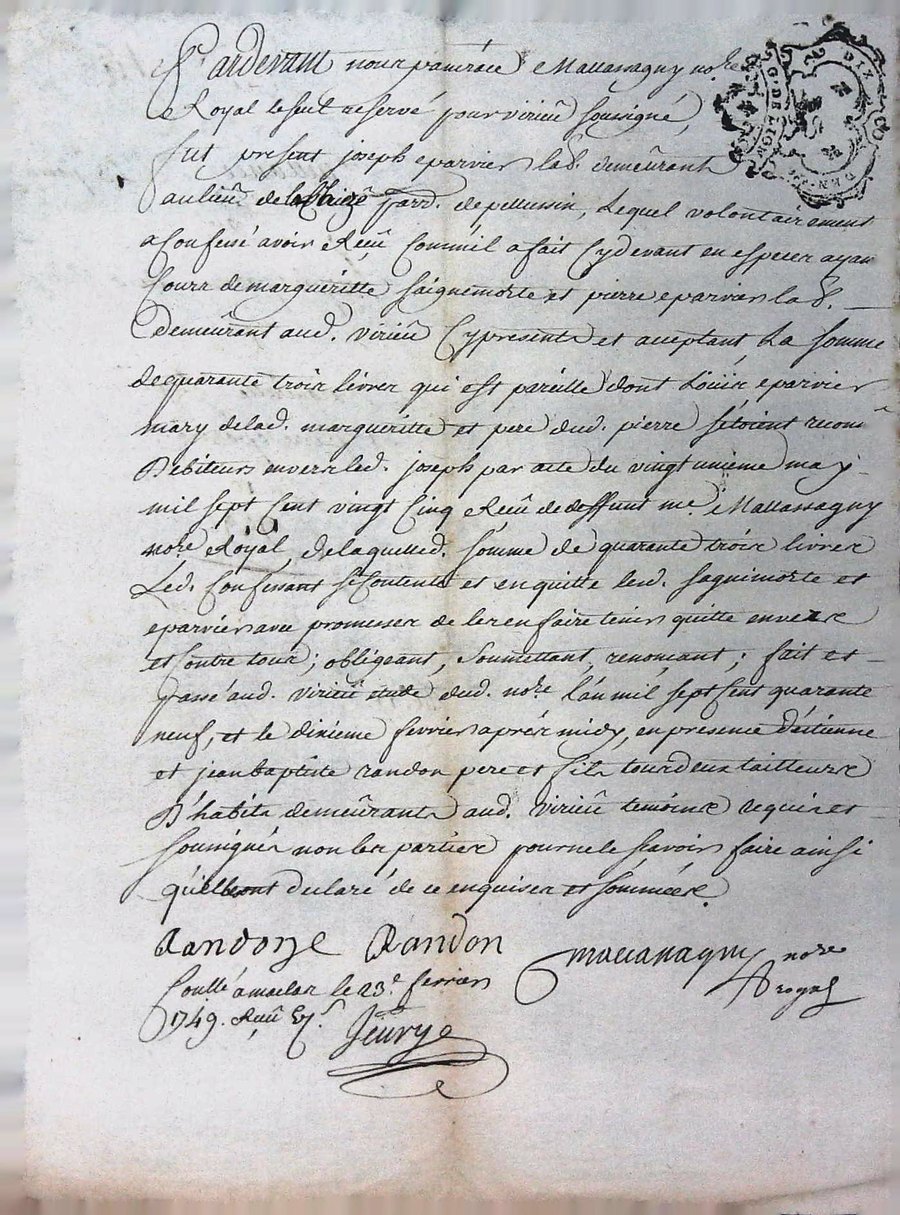 Pardevant nous pancrace Mallassagny no.re
Royal le seul reservé pour virieu sousigné,
fut present joseph eparvier lab. demeurant
au lieu de parr. de pellussin, Lequel volontairement
a Confessé avoir Reçeu Comme il a fait Cydevant en especes ayan
Cours de margueritte saignemorte et pierre eparvier lab.
Demeurant aud. virieu Cypresents et acceptant La somme
de quarante trois livres qui est pareille dont Loüis eparvier
mary de lad. margueritte et pere dud. pierre setoient reconu
Debiteurs envers led. joseph par acte du vingt unieme may
mil sept Cent vingt Cinq Receu de deffunt me. Mallassagny
no.re Royal, de laquelled. somme de quarante trois livres
Led. Confessant se Contente et en quitte lesd. saguimorte et
eparvier avec promesses de les en faire tenir quitte envers
et Contre tous; obligeant, Soumettant, renoncant; fait et
passé aud. virieu etude dud. no.re L'an mil sept Cent quarante
neuf, et le dixieme fevrier après midy, en presence D'étienne
et jean baptiste randon pere et fils tous deux tailleurs
D'habits demeurants aud. virieu temoins requis et
sousignés non les parties pour ne le scavoir faire ainsi
qu'elles ont declaré de ce enquises et sommées.
Randon Randon Mallassagny no.re
royal
Conllé a maclas le 23.e fevrier
1749. Reçu
Jeury
G. DE LYON
DIX DEN.